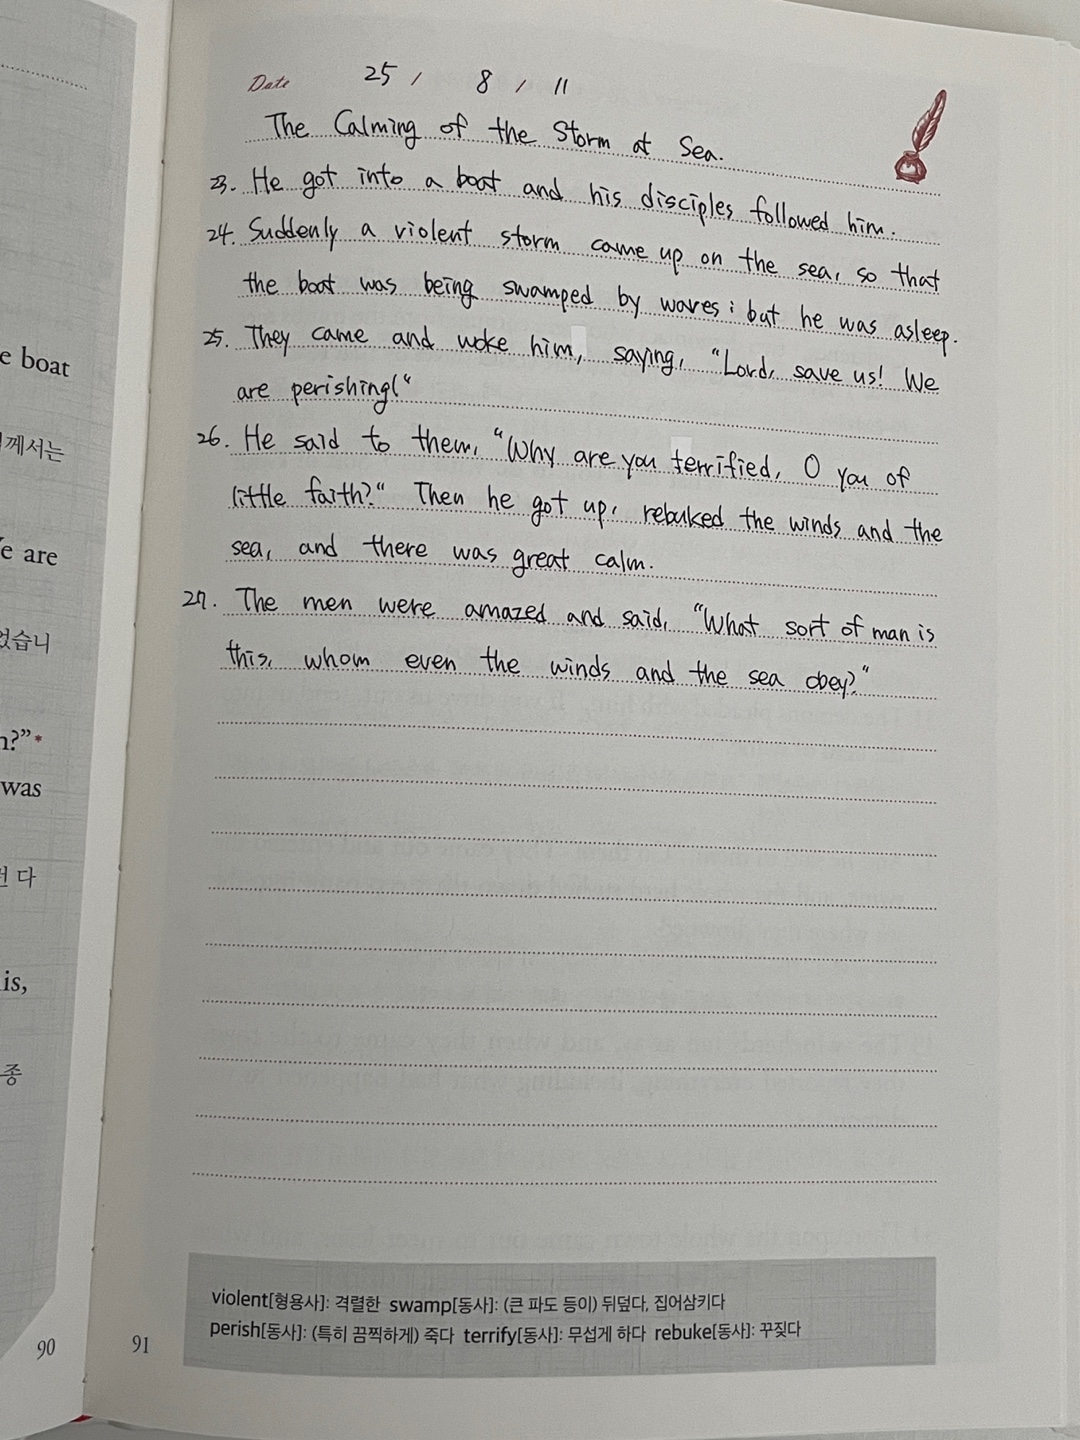 e boat
께서는
e are
었습니
n?”*
was
다
is,
종
90
Date 25 / 8 / 11
The Calming of the Storm at Sea.
23. He got into a boat and his disciples followed him.
24. Suddenly a violent storm came up on the sea, so that
the boat was being swamped by waves; but he was asleep.
25. They came and woke him, saying, "Lord, save us! We
are perishing!"
26. He said to them, "Why are you terrified, O you of
little faith?" Then he got up, rebuked the winds and the
sea, and there was great calm.
27. The men were amazed and said, "What sort of man is
this, whom even the winds and the sea obey?"
violent[형용사]: 격렬한 swamp[동사]: (큰 파도 등이) 뒤덮다, 집어삼키다
perish[동사]: (특히 끔찍하게) 죽다 terrify[동사]: 무섭게 하다 rebuke[동사]: 꾸짖다
91